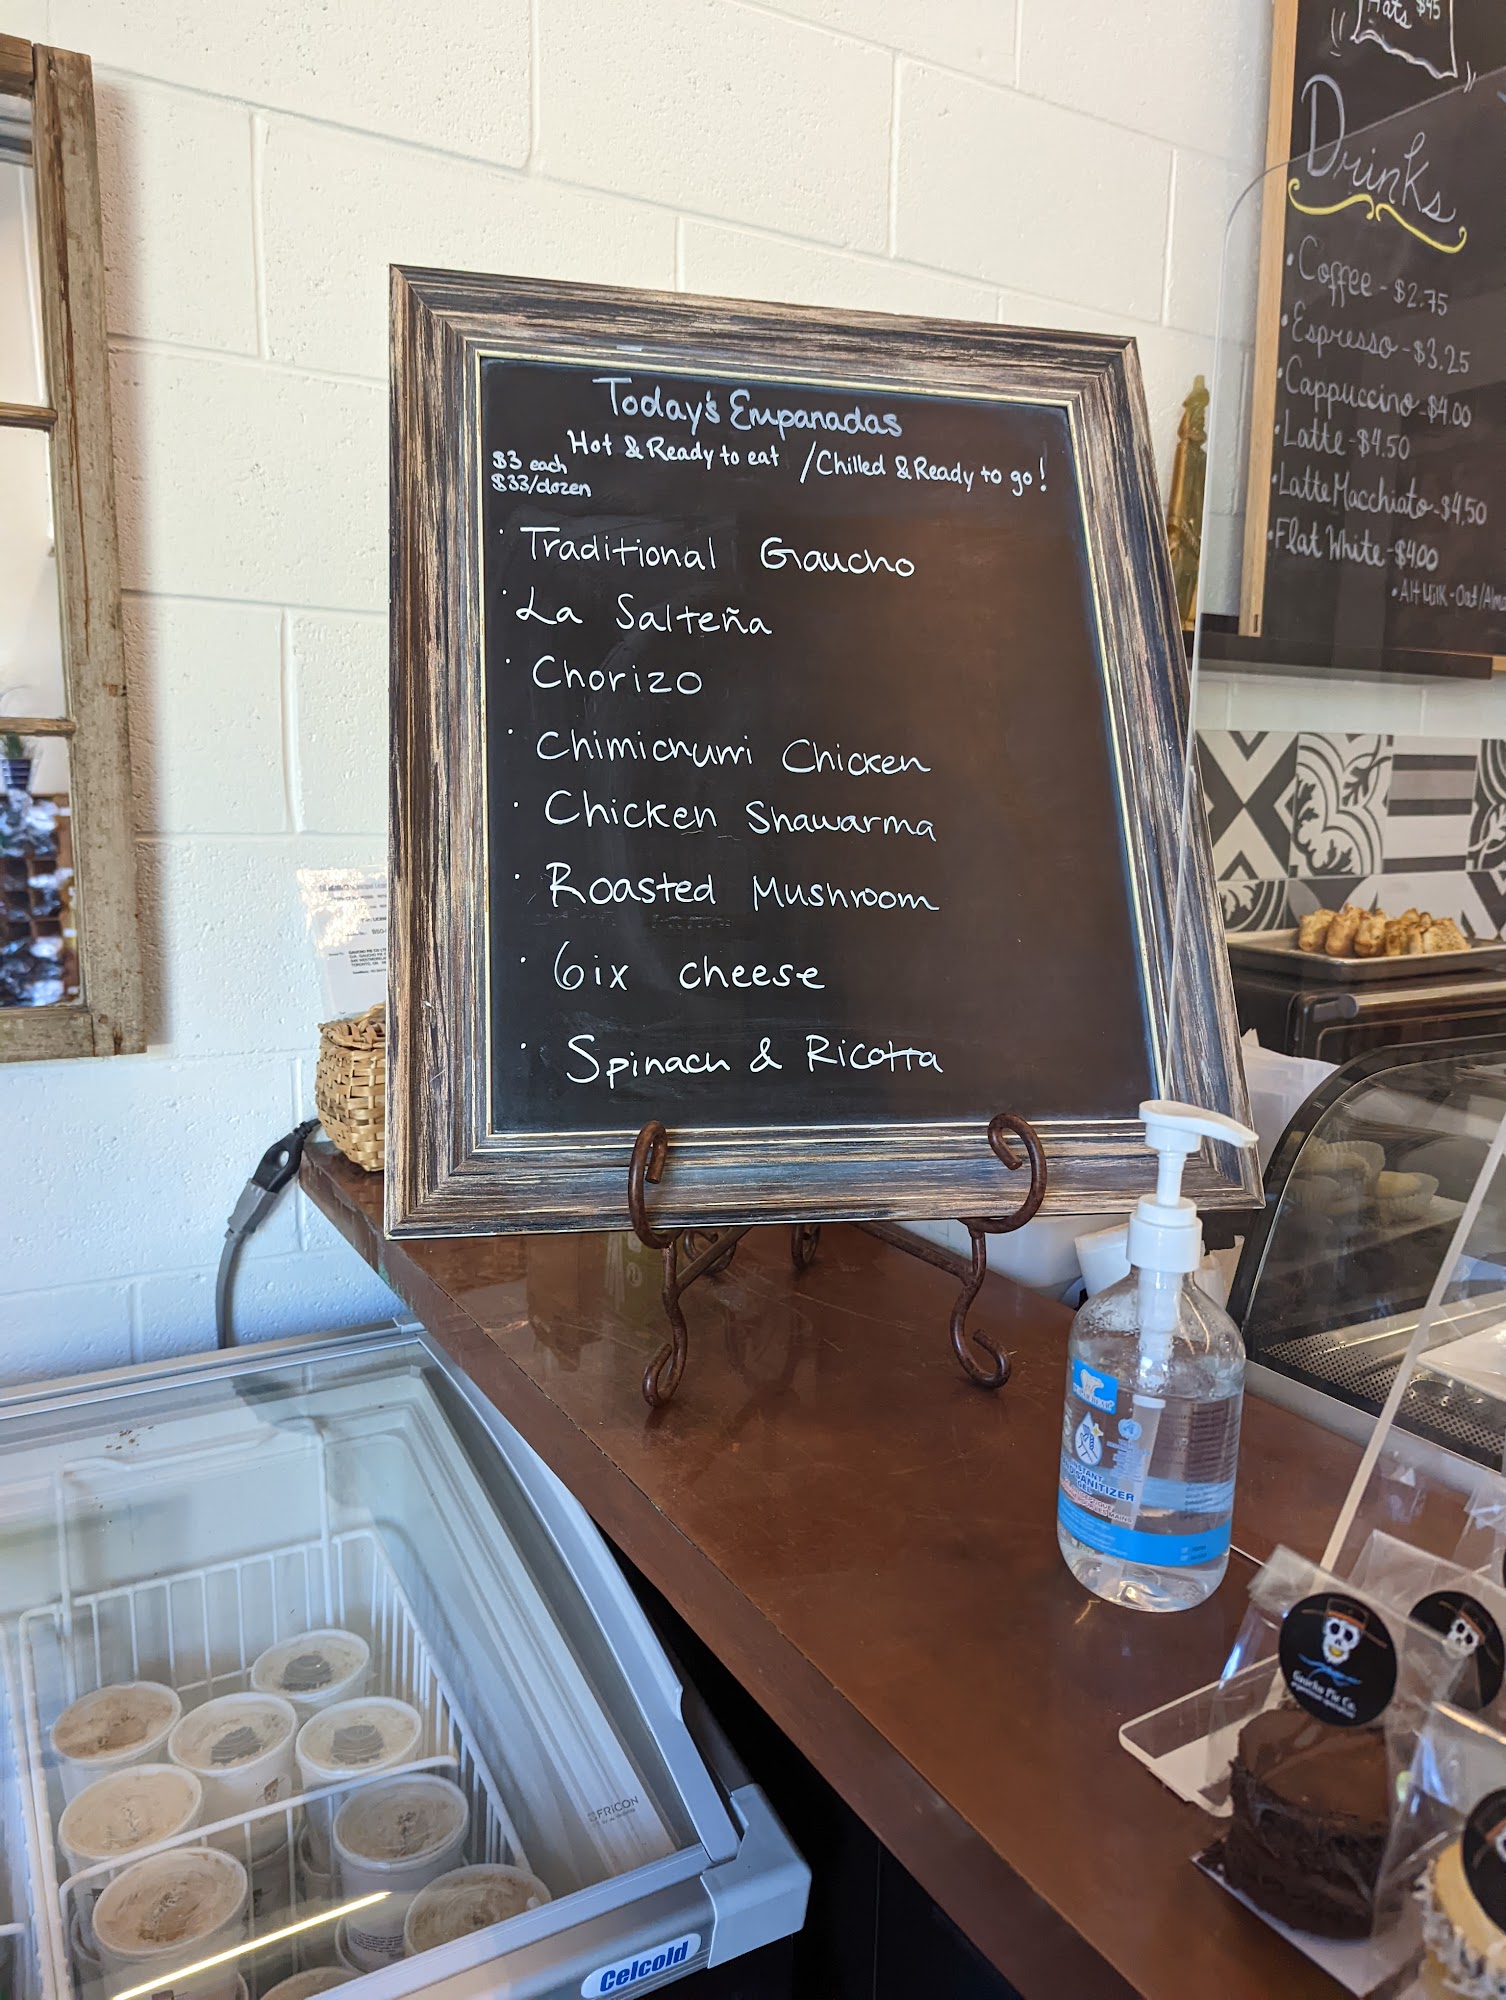 Today's Empanadas
Hot & Ready to eat / Chilled & Ready to go!
$3 each
$33/dozen
· Traditional Gaucho
· La Salteña
· Chorizo
· Chimichurri Chicken
· Chicken Shawarma
· Roasted Mushroom
· 6ix cheese
· Spinach & Ricotta
Hats $45
Drinks
• Coffee - $2.75
• Espresso - $3.25
• Cappuccino - $4.00
• Latte - $4.50
• Latte Macchiato - $4.50
• Flat White - $4.00
• Alt Milk - Oat/
INSTANT
SANITIZER
GEL
FRICON
Celcold
Gaucho Pie Co.